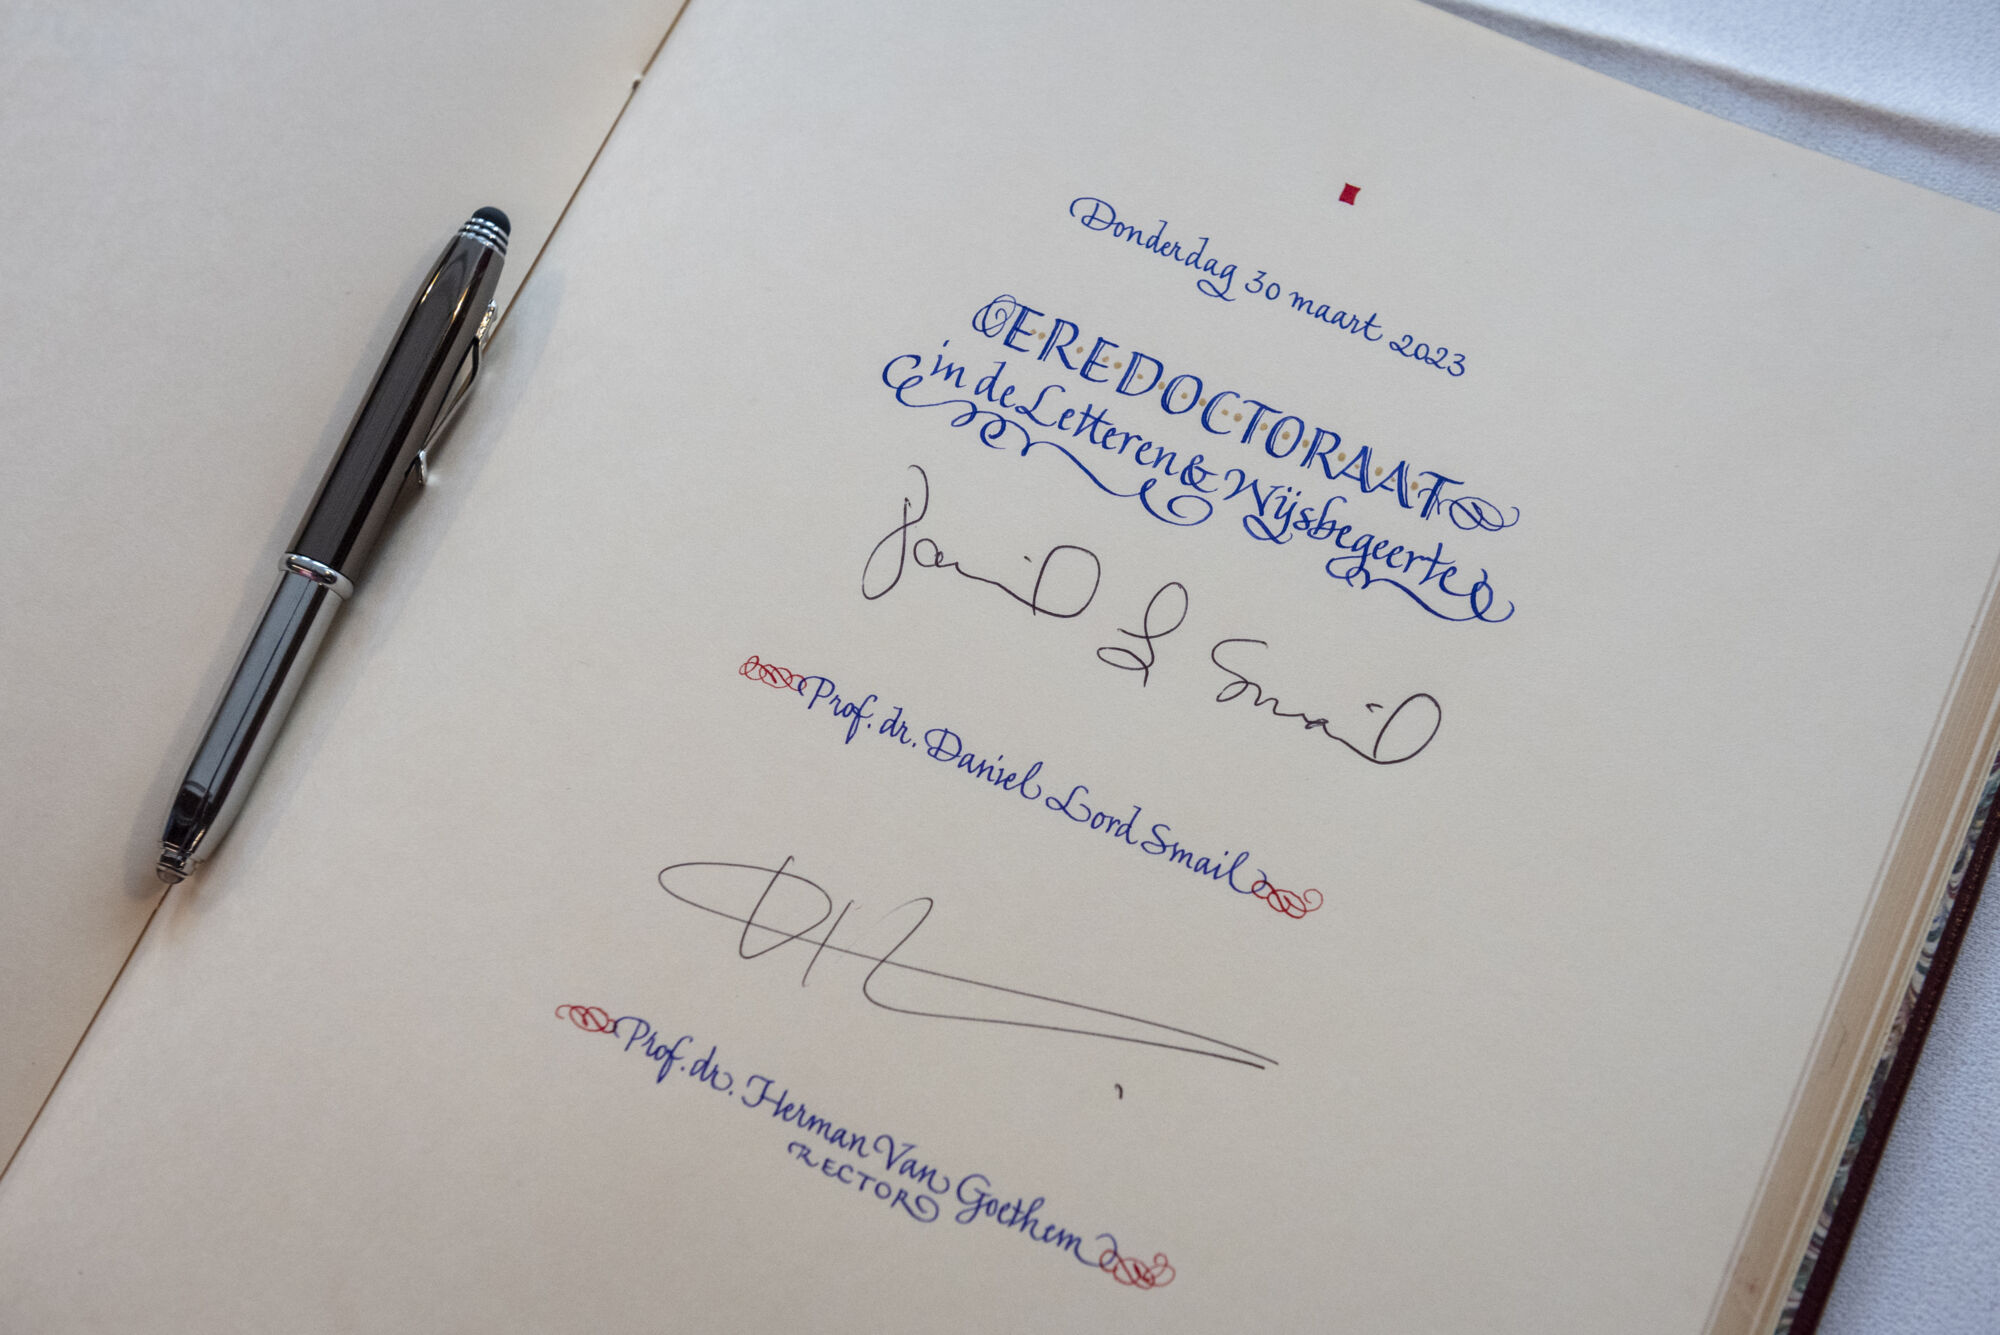 Donderdag 30 maart 2023
EREDOCTORAAT
in de Letteren & Wijsbegeerte
Daniel L Smail
Prof. dr. Daniel Lord Smail
Prof. dr. Herman Van Goethem
RECTOR